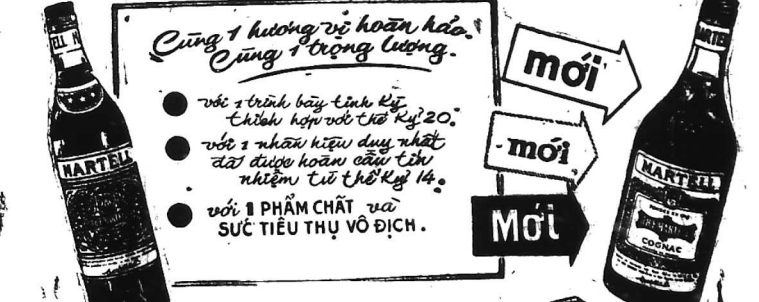 Cùng 1 hương vị hoàn hảo.
Cùng 1 trọng lượng.
với 1 trình bày tinh kỳ
thích hợp với thế kỷ 20.
với 1 nhãn hiệu duy nhất
đã được hoàn cầu tín
nhiệm từ thế kỷ 14.
với 1 PHẨM CHẤT và
SỨC TIÊU THỤ VÔ ĐỊCH.
mới
mới
Mới
MARTELL
MARTELL
COGNAC